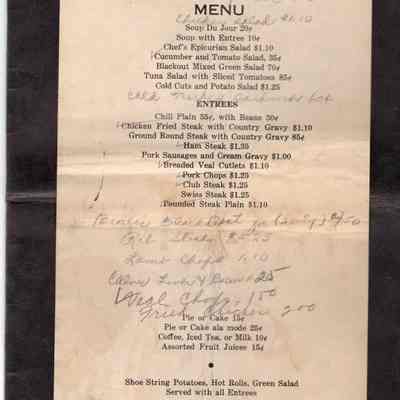 MENU
Chicken Salad $1.10
Soup Du Jour 20¢
Soup with Entree 10¢
Chef's Epicurian Salad $1.10
Cucumber and Tomato Salad, 35¢
Blackout Mixed Green Salad 70¢
Tuna Salad with Sliced Tomatoes 85¢
Cold Cuts and Potato Salad $1.25
Cold Turkey Sandwich 60¢
ENTREES
Chili Plain 55¢, with Beans 30¢
Chicken Fried Steak with Country Gravy $1.10
Ground Round Steak with Country Gravy 85¢
Ham Steak $1.35
Pork Sausages and Cream Gravy $1.00
Breaded Veal Cutlets $1.10
Pork Chops $1.25
Club Steak $1.25
Swiss Steak $1.25
Pounded Steak Plain $1.10
Rib Steak $2.25
Lamb Chops 1.10
Calves Liver & Bacon 25
Veal Chops. 1.50
Fried Chicken 2.00
Pie or Cake 15¢
Pie or Cake ala mode 25¢
Coffee, Iced Tea, or Milk 10¢
Assorted Fruit Juices 15¢
Shoe String Potatoes, Hot Rolls, Green Salad
Served with all Entrees